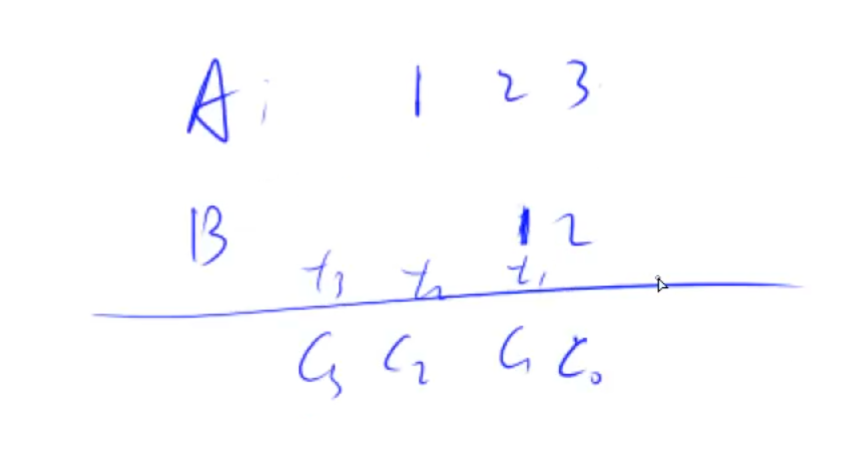 A: 1 2 3
B 1 2
t₃ t₂ t₁
C₃ C₂ C₁ C₀